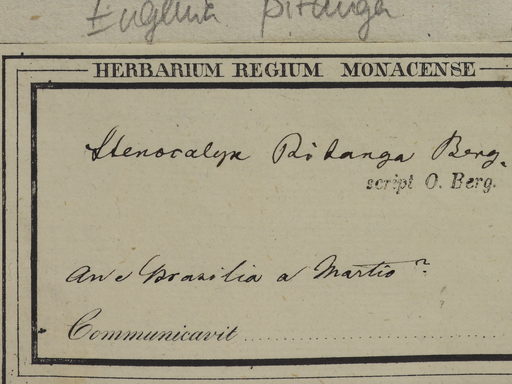 Eugenia pitanga
HERBARIUM REGIUM MONACENSE
Stenocalyx Pitanga Berg.
script O. Berg.
an e Brasilia a Martio?
Communicavit